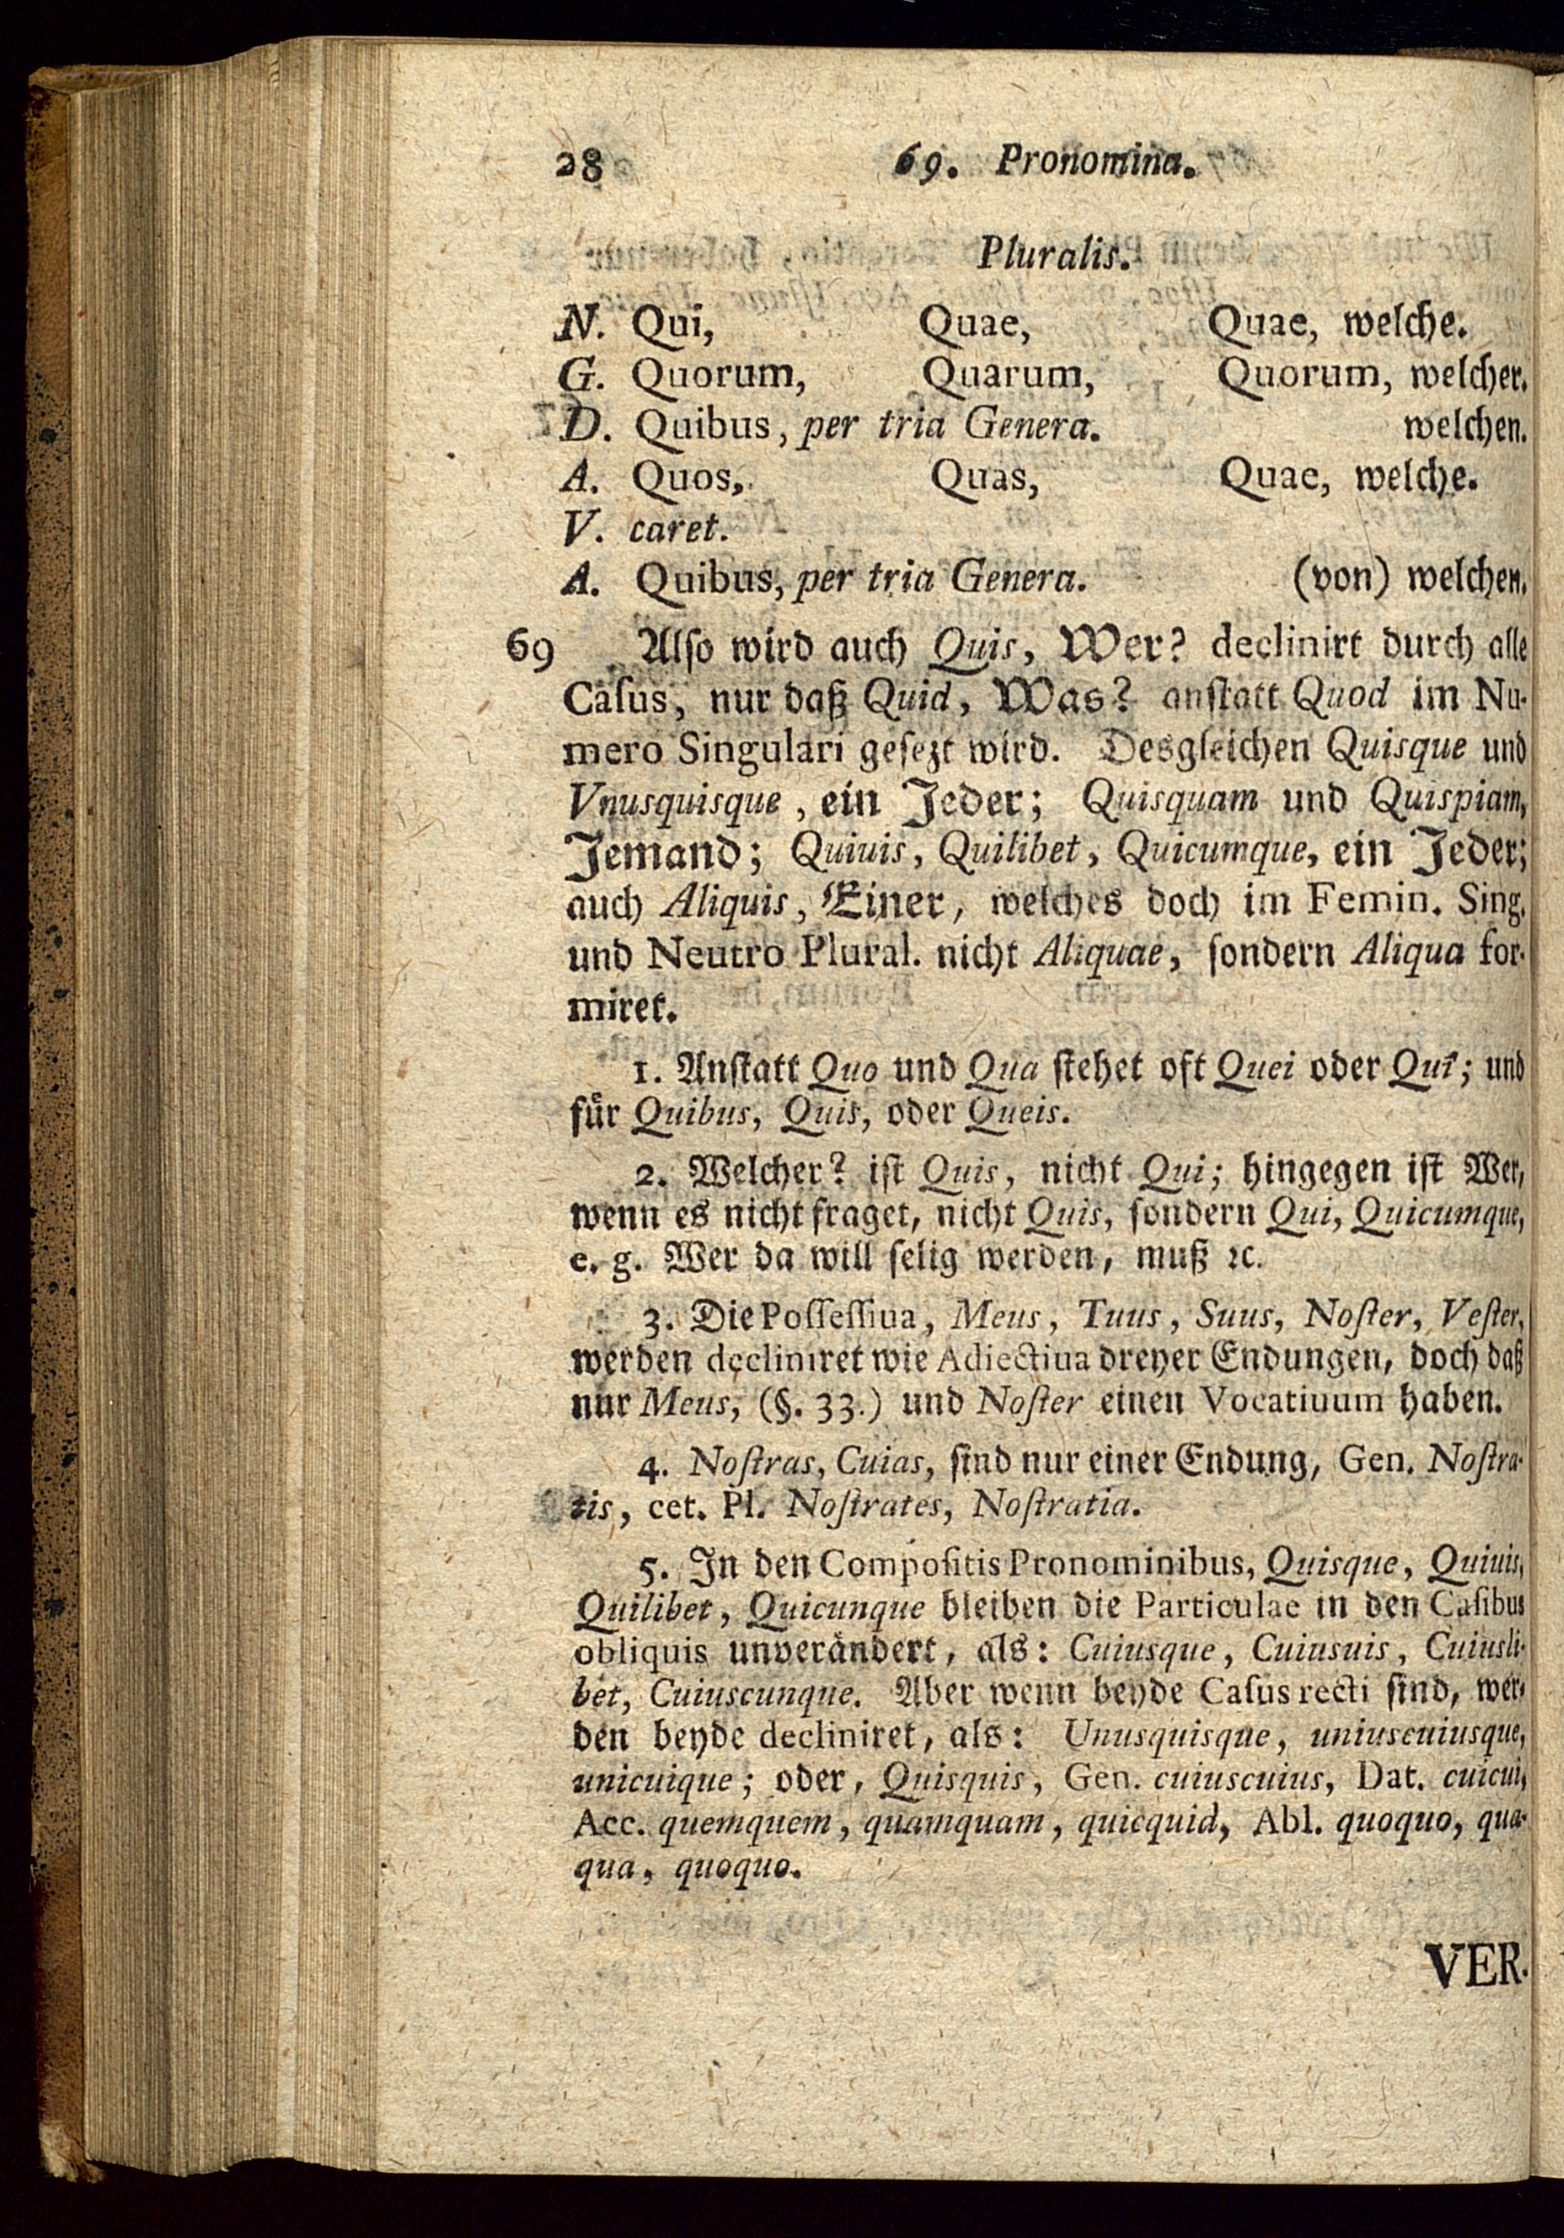 28 69. Pronomina.
Pluralis.
N. Qui, Quae, Quae, welche.
G. Quorum, Quarum, Quorum, welcher.
D. Quibus, per tria Genera. welchen.
A. Quos, Quas, Quae, welche.
V. caret.
A. Quibus, per tria Genera. (von) welchen.
69 Also wird auch Quis, Wer? declinirt durch alle
Casus, nur daß Quid, Was? anstatt Quod im Nu-
mero Singulari gesezt wird. Desgleichen Quisque und
Vnusquisque, ein Jeder; Quisquam und Quispiam,
Jemand; Quiuis, Quilibet, Quicumque, ein Jeder;
auch Aliquis, Einer, welches doch im Femin. Sing.
und Neutro Plural. nicht Aliquae, sondern Aliqua for-
miret.
1. Anstatt Quo und Qua stehet oft Quei oder Quî; und
für Quibus, Quis, oder Queis.
2. Welcher? ist Quis, nicht Qui; hingegen ist Wer,
wenn es nicht fraget, nicht Quis, sondern Qui, Quicumque,
e. g. Wer da will selig werden, muß ꝛc.
3. Die Possessiua, Meus, Tuus, Suus, Noster, Vester,
werden decliniret wie Adiectiua dreyer Endungen, doch daß
nur Meus, (§. 33.) und Noster einen Vocatiuum haben.
4. Nostras, Cuias, sind nur einer Endung, Gen. Nostra-
tis, cet. Pl. Nostrates, Nostratia.
5. In den Compositis Pronominibus, Quisque, Quiuis,
Quilibet, Quicunque bleiben die Particulae in den Casibus
obliquis unverändert, als: Cuiusque, Cuiusuis, Cuiusli-
bet, Cuiuscunque. Aber wenn beyde Casus recti sind, wer-
den beyde decliniret, als: Unusquisque, uniuscuiusque,
unicuique; oder, Quisquis, Gen. cuiuscuius, Dat. cuicui,
Acc. quemquem, quamquam, quicquid, Abl. quoquo, qua-
qua, quoquo.
VER-